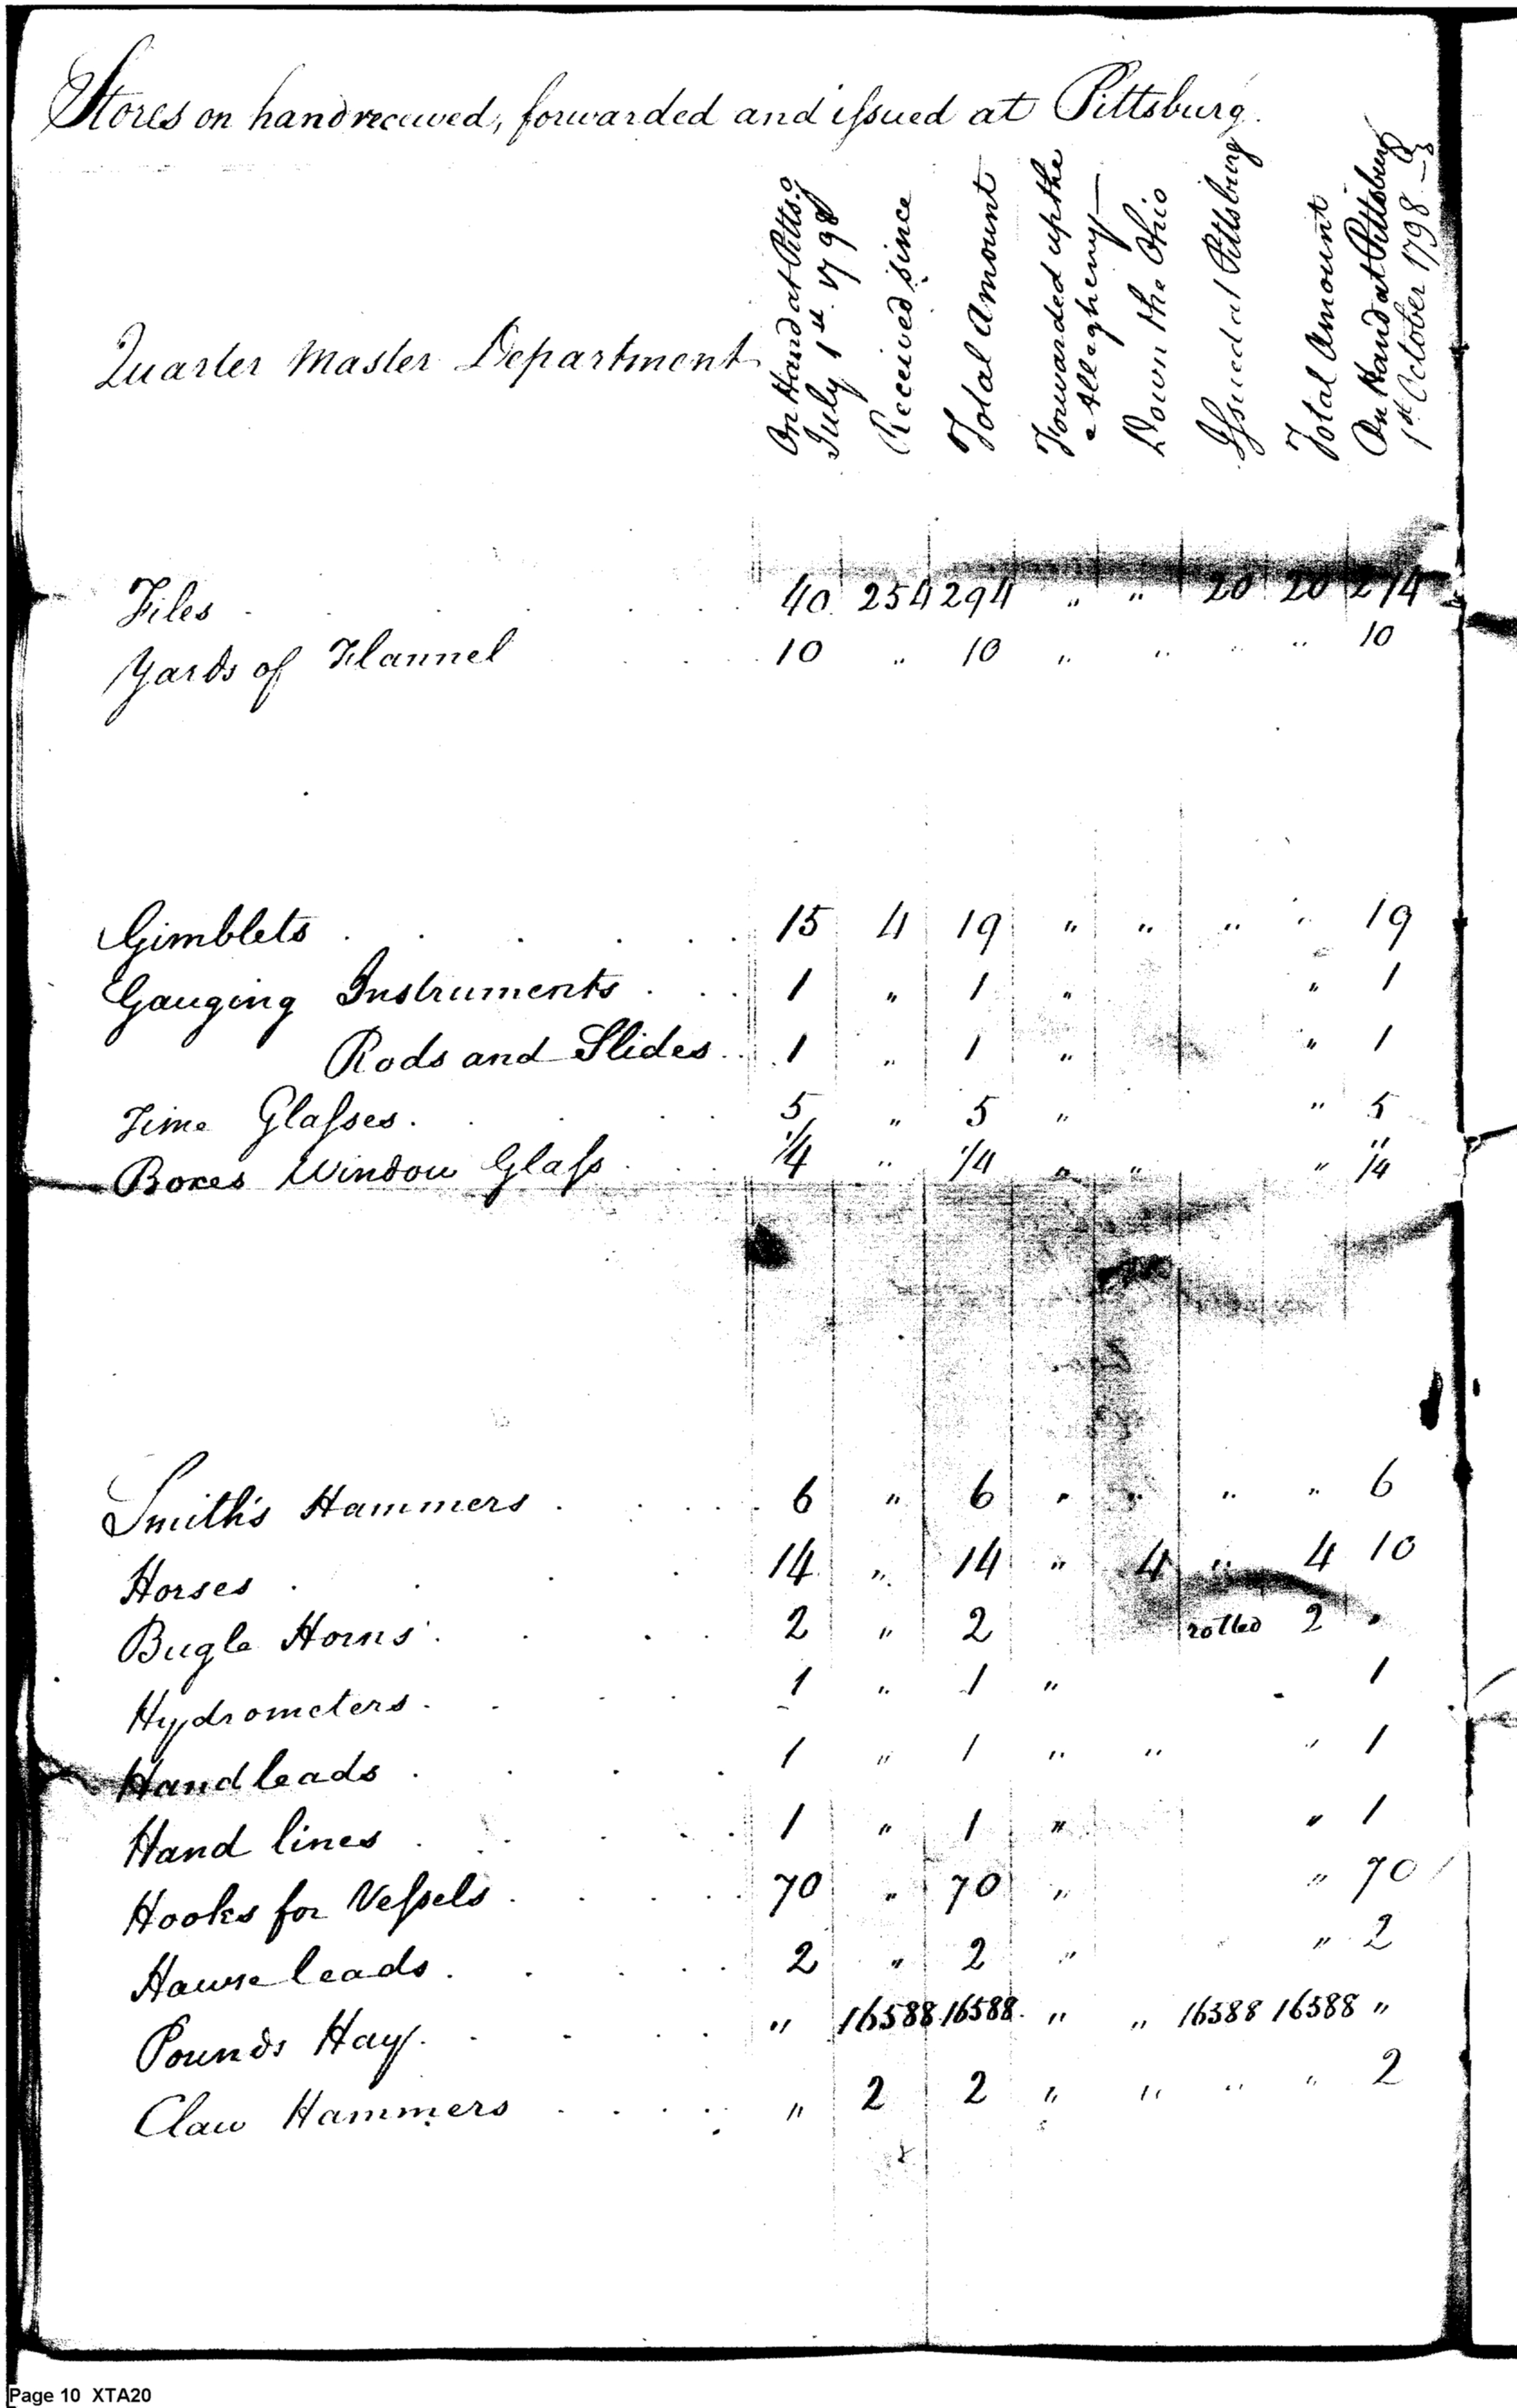 Stores on hand received, forwarded and issued at Pittsburg.
Quarter Master Department
On Hand at Pittsg
July 1st 1798
Received since
Total Amount
Forwarded up the
Allegheny —
Down the Ohio
Issued at Pittsburg
Total Amount
On Hand at Pittsburg
1st October 1798
Files 40 254 294 " " 20 20 274
Yards of Flannel 10 " 10 " " " " 10
Gimblets 15 4 19 " " " " 19
Gauging Instruments 1 " 1 " " 1
Rods and Slides 1 " 1 " " 1
Time Glasses 5 " 5 " " 5
Boxes Window Glass 1/4 " 1/4 " " " 1/4
Smith's Hammers 6 " 6 " " " " 6
Horses 14 " 14 " 4 " 4 10
Bugle Horns 2 " 2 rotted 2 "
Hydrometers 1 " 1 " 1
Hand leads 1 " 1 " " " 1
Hand lines 1 " 1 " " 1
Hooks for Vessels 70 " 70 " " 70
Hawse leads 2 " 2 " " 2
Pounds Hay " 16588 16588 " " 16588 16588 "
Claw Hammers " 2 2 " " " " 2
Page 10 XTA20